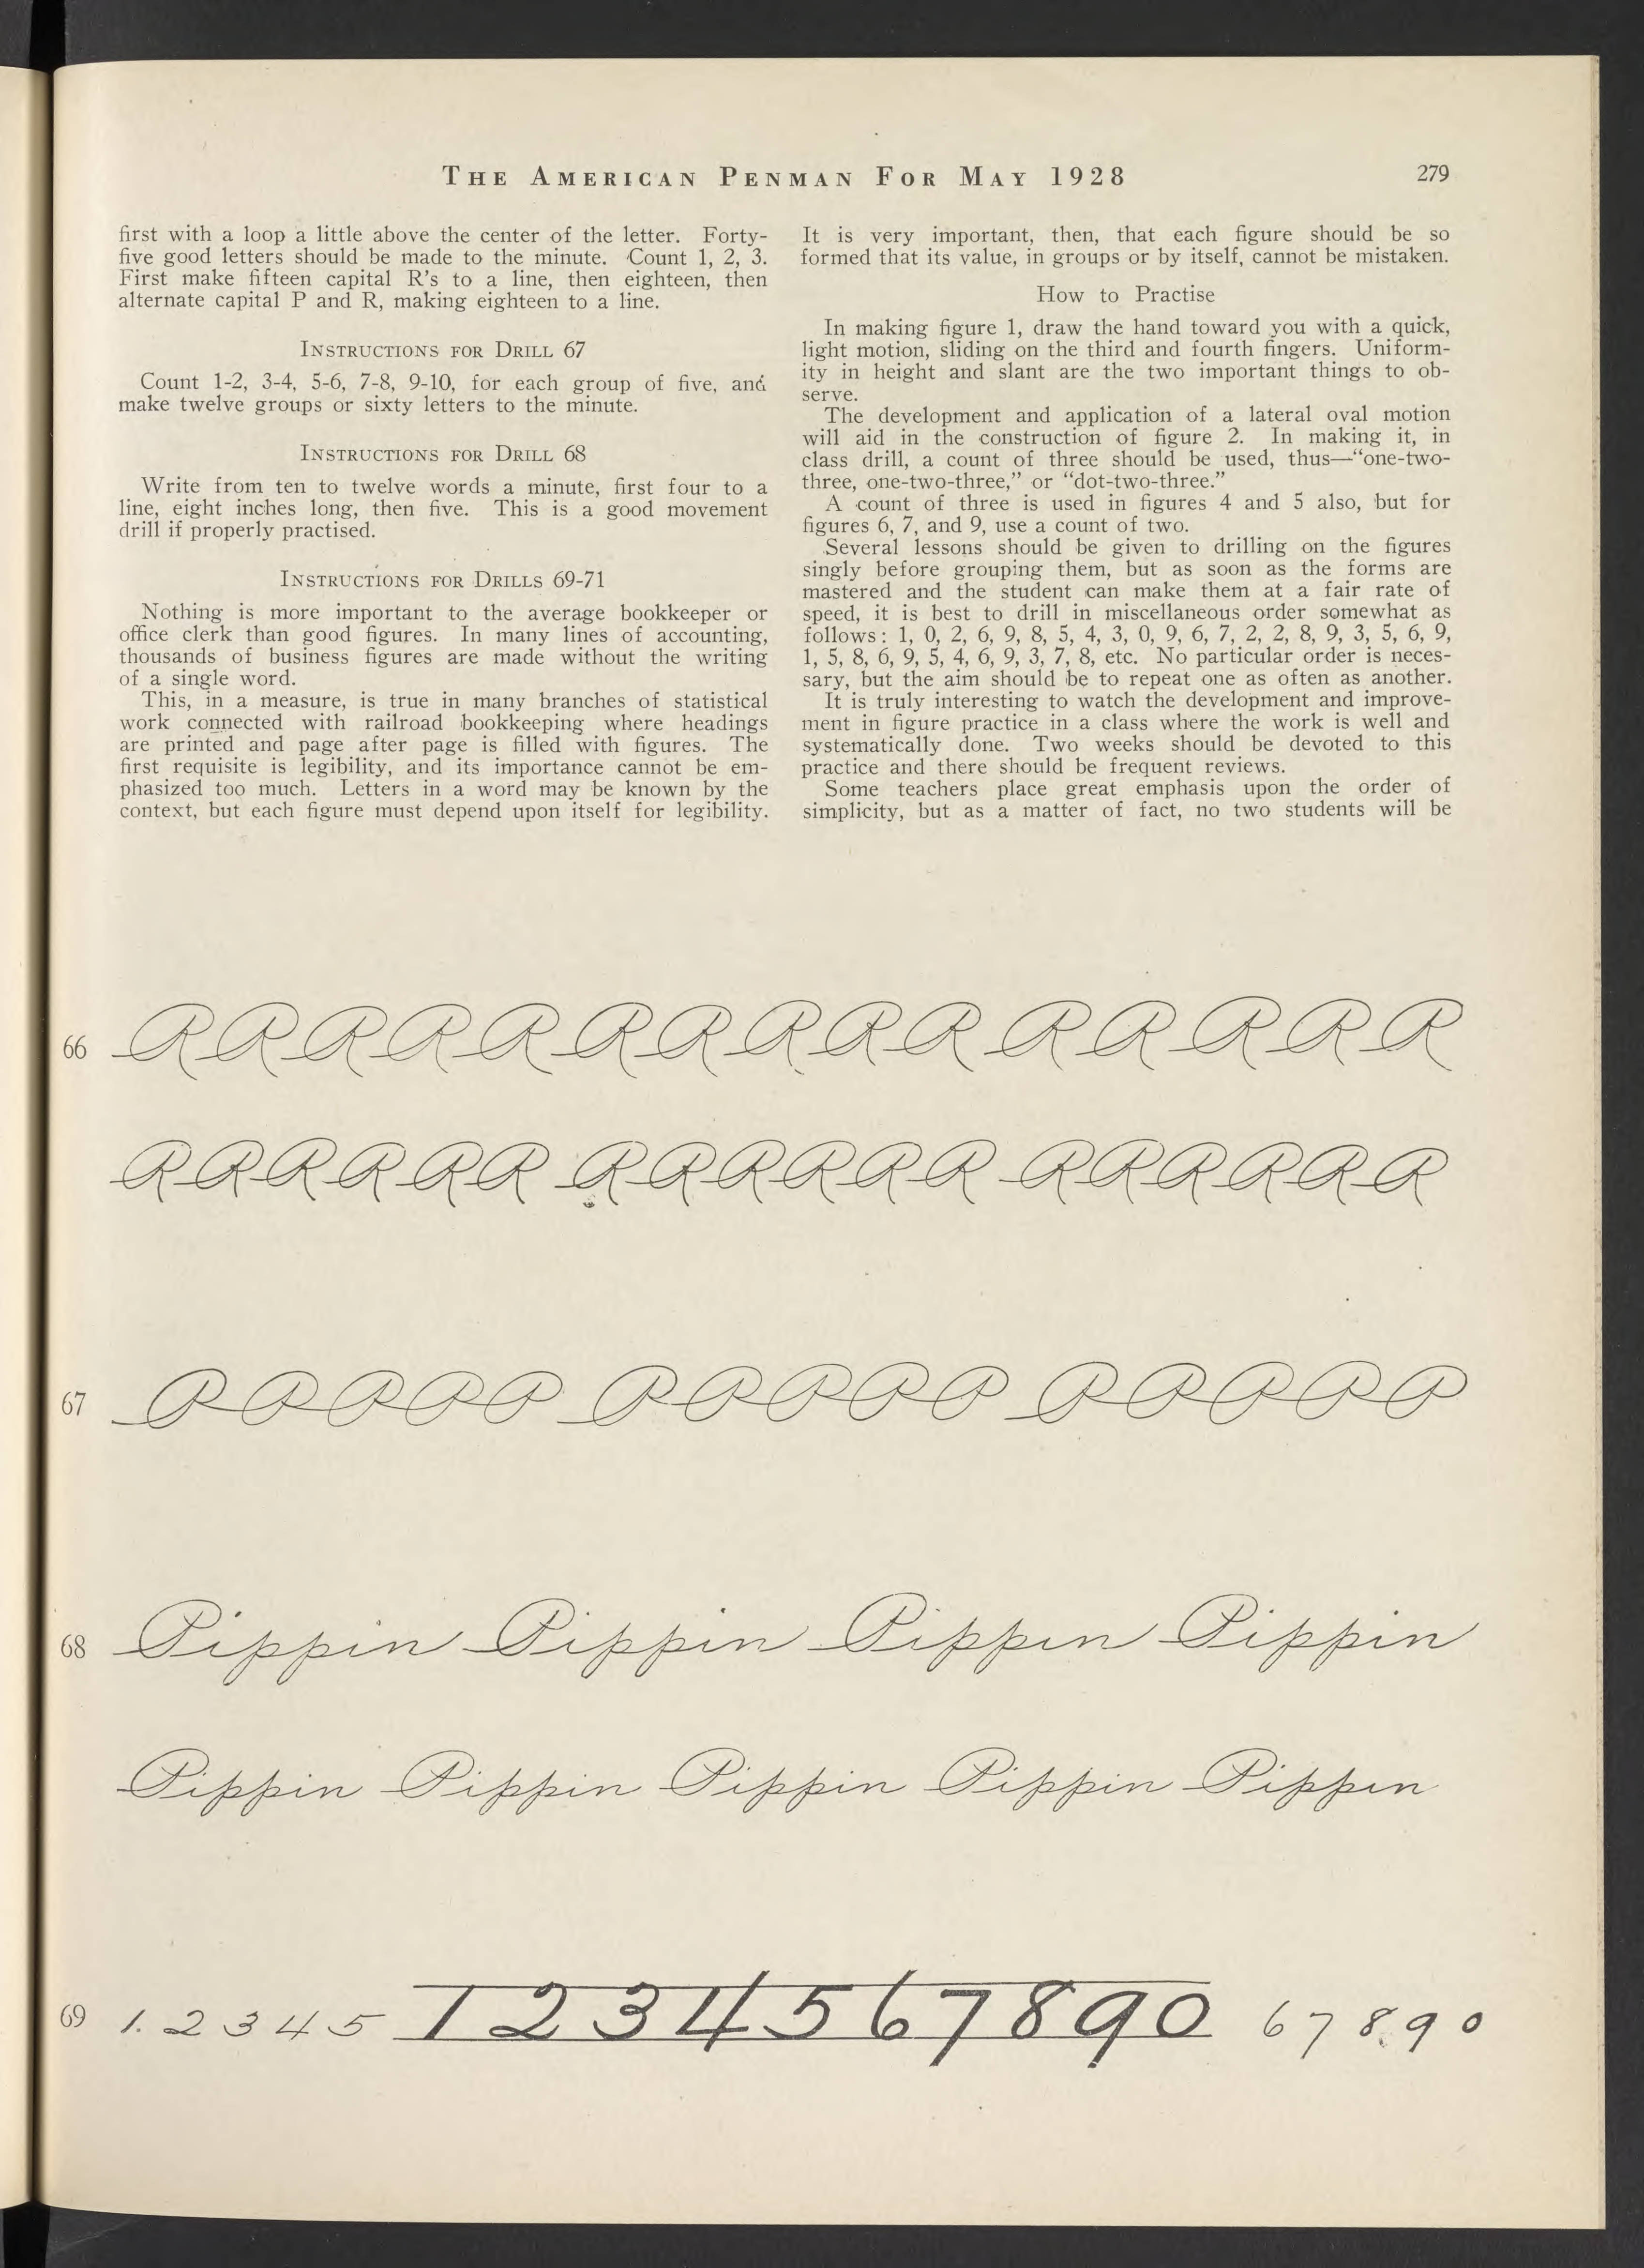 THE AMERICAN PENMAN FOR MAY 1928
279
first with a loop a little above the center of the letter. Forty-
five good letters should be made to the minute. Count 1, 2, 3.
First make fifteen capital R's to a line, then eighteen, then
alternate capital P and R, making eighteen to a line.
INSTRUCTIONS FOR DRILL 67
Count 1-2, 3-4, 5-6, 7-8, 9-10, for each group of five, and
make twelve groups or sixty letters to the minute.
INSTRUCTIONS FOR DRILL 68
Write from ten to twelve words a minute, first four to a
line, eight inches long, then five. This is a good movement
drill if properly practised.
INSTRUCTIONS FOR DRILLS 69-71
Nothing is more important to the average bookkeeper or
office clerk than good figures. In many lines of accounting,
thousands of business figures are made without the writing
of a single word.
This, in a measure, is true in many branches of statistical
work connected with railroad bookkeeping where headings
are printed and page after page is filled with figures. The
first requisite is legibility, and its importance cannot be em-
phasized too much. Letters in a word may be known by the
context, but each figure must depend upon itself for legibility.
It is very important, then, that each figure should be so
formed that its value, in groups or by itself, cannot be mistaken.
How to Practise
In making figure 1, draw the hand toward you with a quick,
light motion, sliding on the third and fourth fingers. Uniform-
ity in height and slant are the two important things to ob-
serve.
The development and application of a lateral oval motion
will aid in the construction of figure 2. In making it, in
class drill, a count of three should be used, thus—“one-two-
three, one-two-three,” or “dot-two-three.”
A count of three is used in figures 4 and 5 also, but for
figures 6, 7, and 9, use a count of two.
Several lessons should be given to drilling on the figures
singly before grouping them, but as soon as the forms are
mastered and the student can make them at a fair rate of
speed, it is best to drill in miscellaneous order somewhat as
follows: 1, 0, 2, 6, 9, 8, 5, 4, 3, 0, 9, 6, 7, 2, 2, 8, 9, 3, 5, 6, 9,
1, 5, 8, 6, 9, 5, 4, 6, 9, 3, 7, 8, etc. No particular order is neces-
sary, but the aim should be to repeat one as often as another.
It is truly interesting to watch the development and improve-
ment in figure practice in a class where the work is well and
systematically done. Two weeks should be devoted to this
practice and there should be frequent reviews.
Some teachers place great emphasis upon the order of
simplicity, but as a matter of fact, no two students will be
66 RRRRRRRRRR RRRRR
RRRRRR RRRRRR RRRRRR
67 PPPPP PPPPP PPPPP
68 Pippin Pippin Pippin Pippin
Pippin Pippin Pippin Pippin Pippin
69 1 2 3 4 5 1 2 3 4 5 6 7 8 9 0 6 7 8 9 0